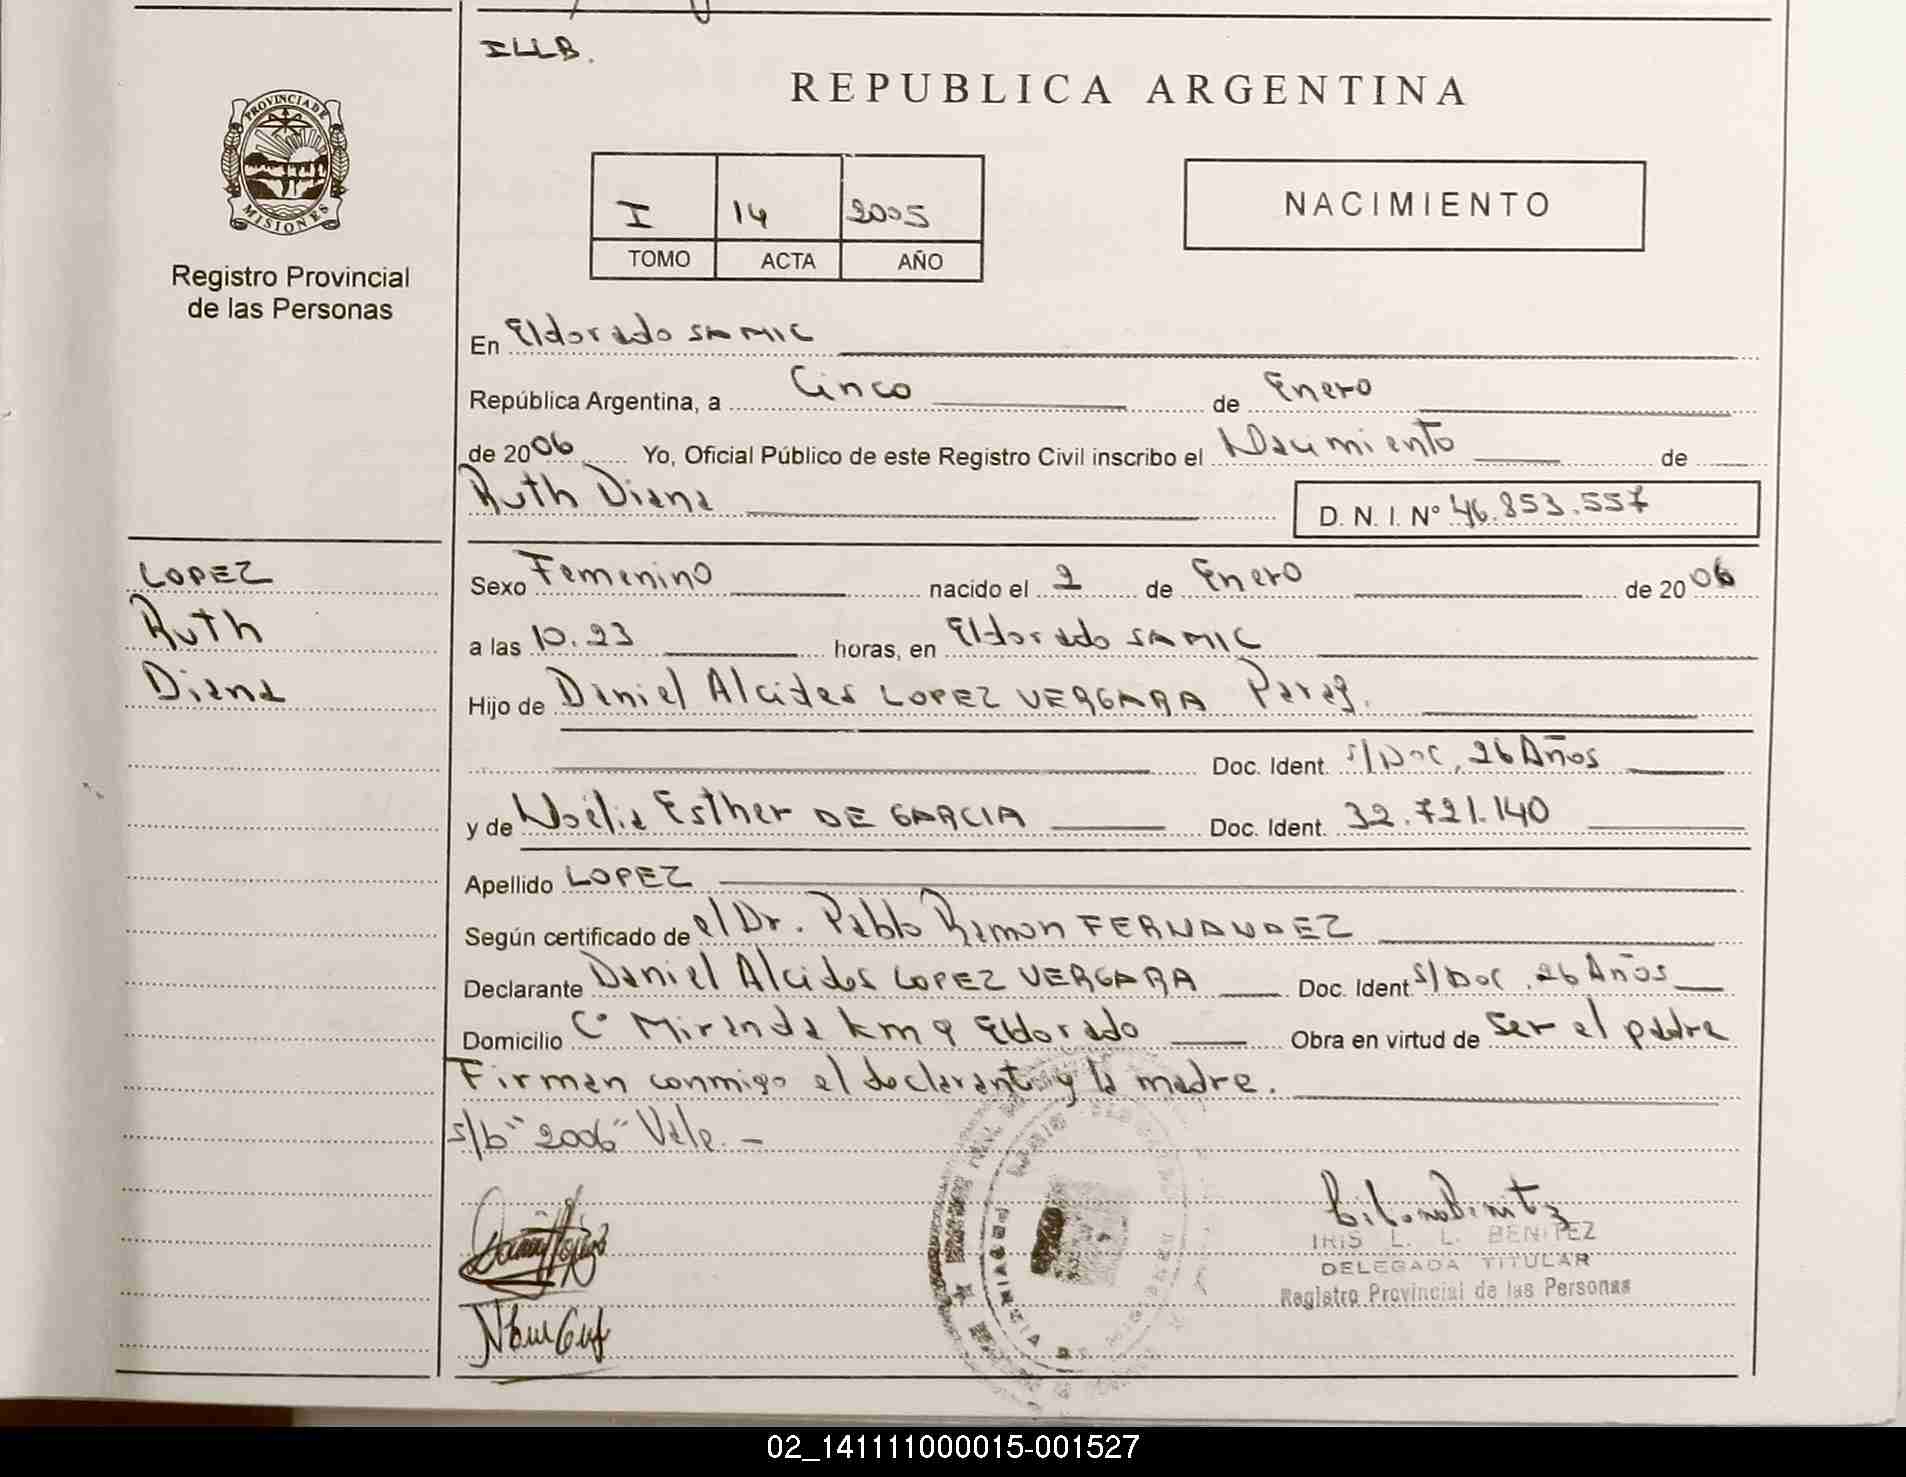 ILLB.
PROVINCIA DE
MISIONES
Registro Provincial
de las Personas
REPUBLICA ARGENTINA
I 14 2005
TOMO ACTA AÑO
NACIMIENTO
En Eldorado SAMIC
República Argentina, a Cinco de Enero
de 2006 Yo, Oficial Público de este Registro Civil inscribo el Nacimiento de
Ruth Diana D. N. I. Nº 46.853.557
LOPEZ
Ruth
Diana
Sexo Femenino nacido el 2 de Enero de 2006
a las 10.23 horas, en Eldorado SAMIC
Hijo de Daniel Alcides LOPEZ VERGARA Parag.
Doc. Ident. s/Doc, 26 Años
y de Noelia Esther DE GARCIA Doc. Ident. 32.721.140
Apellido LOPEZ
Según certificado de el Dr. Pablo Ramon FERNANDEZ
Declarante Daniel Alcides LOPEZ VERGARA Doc. Ident s/Doc, 26 Años
Domicilio Cº Miranda km 9 Eldorado Obra en virtud de ser el padre
Firman conmigo el declarante y la madre.
s/b "2006" Vale. -
IRIS L. L. BENITEZ
DELEGADA TITULAR
Registro Provincial de las Personas
02_141111000015-001527